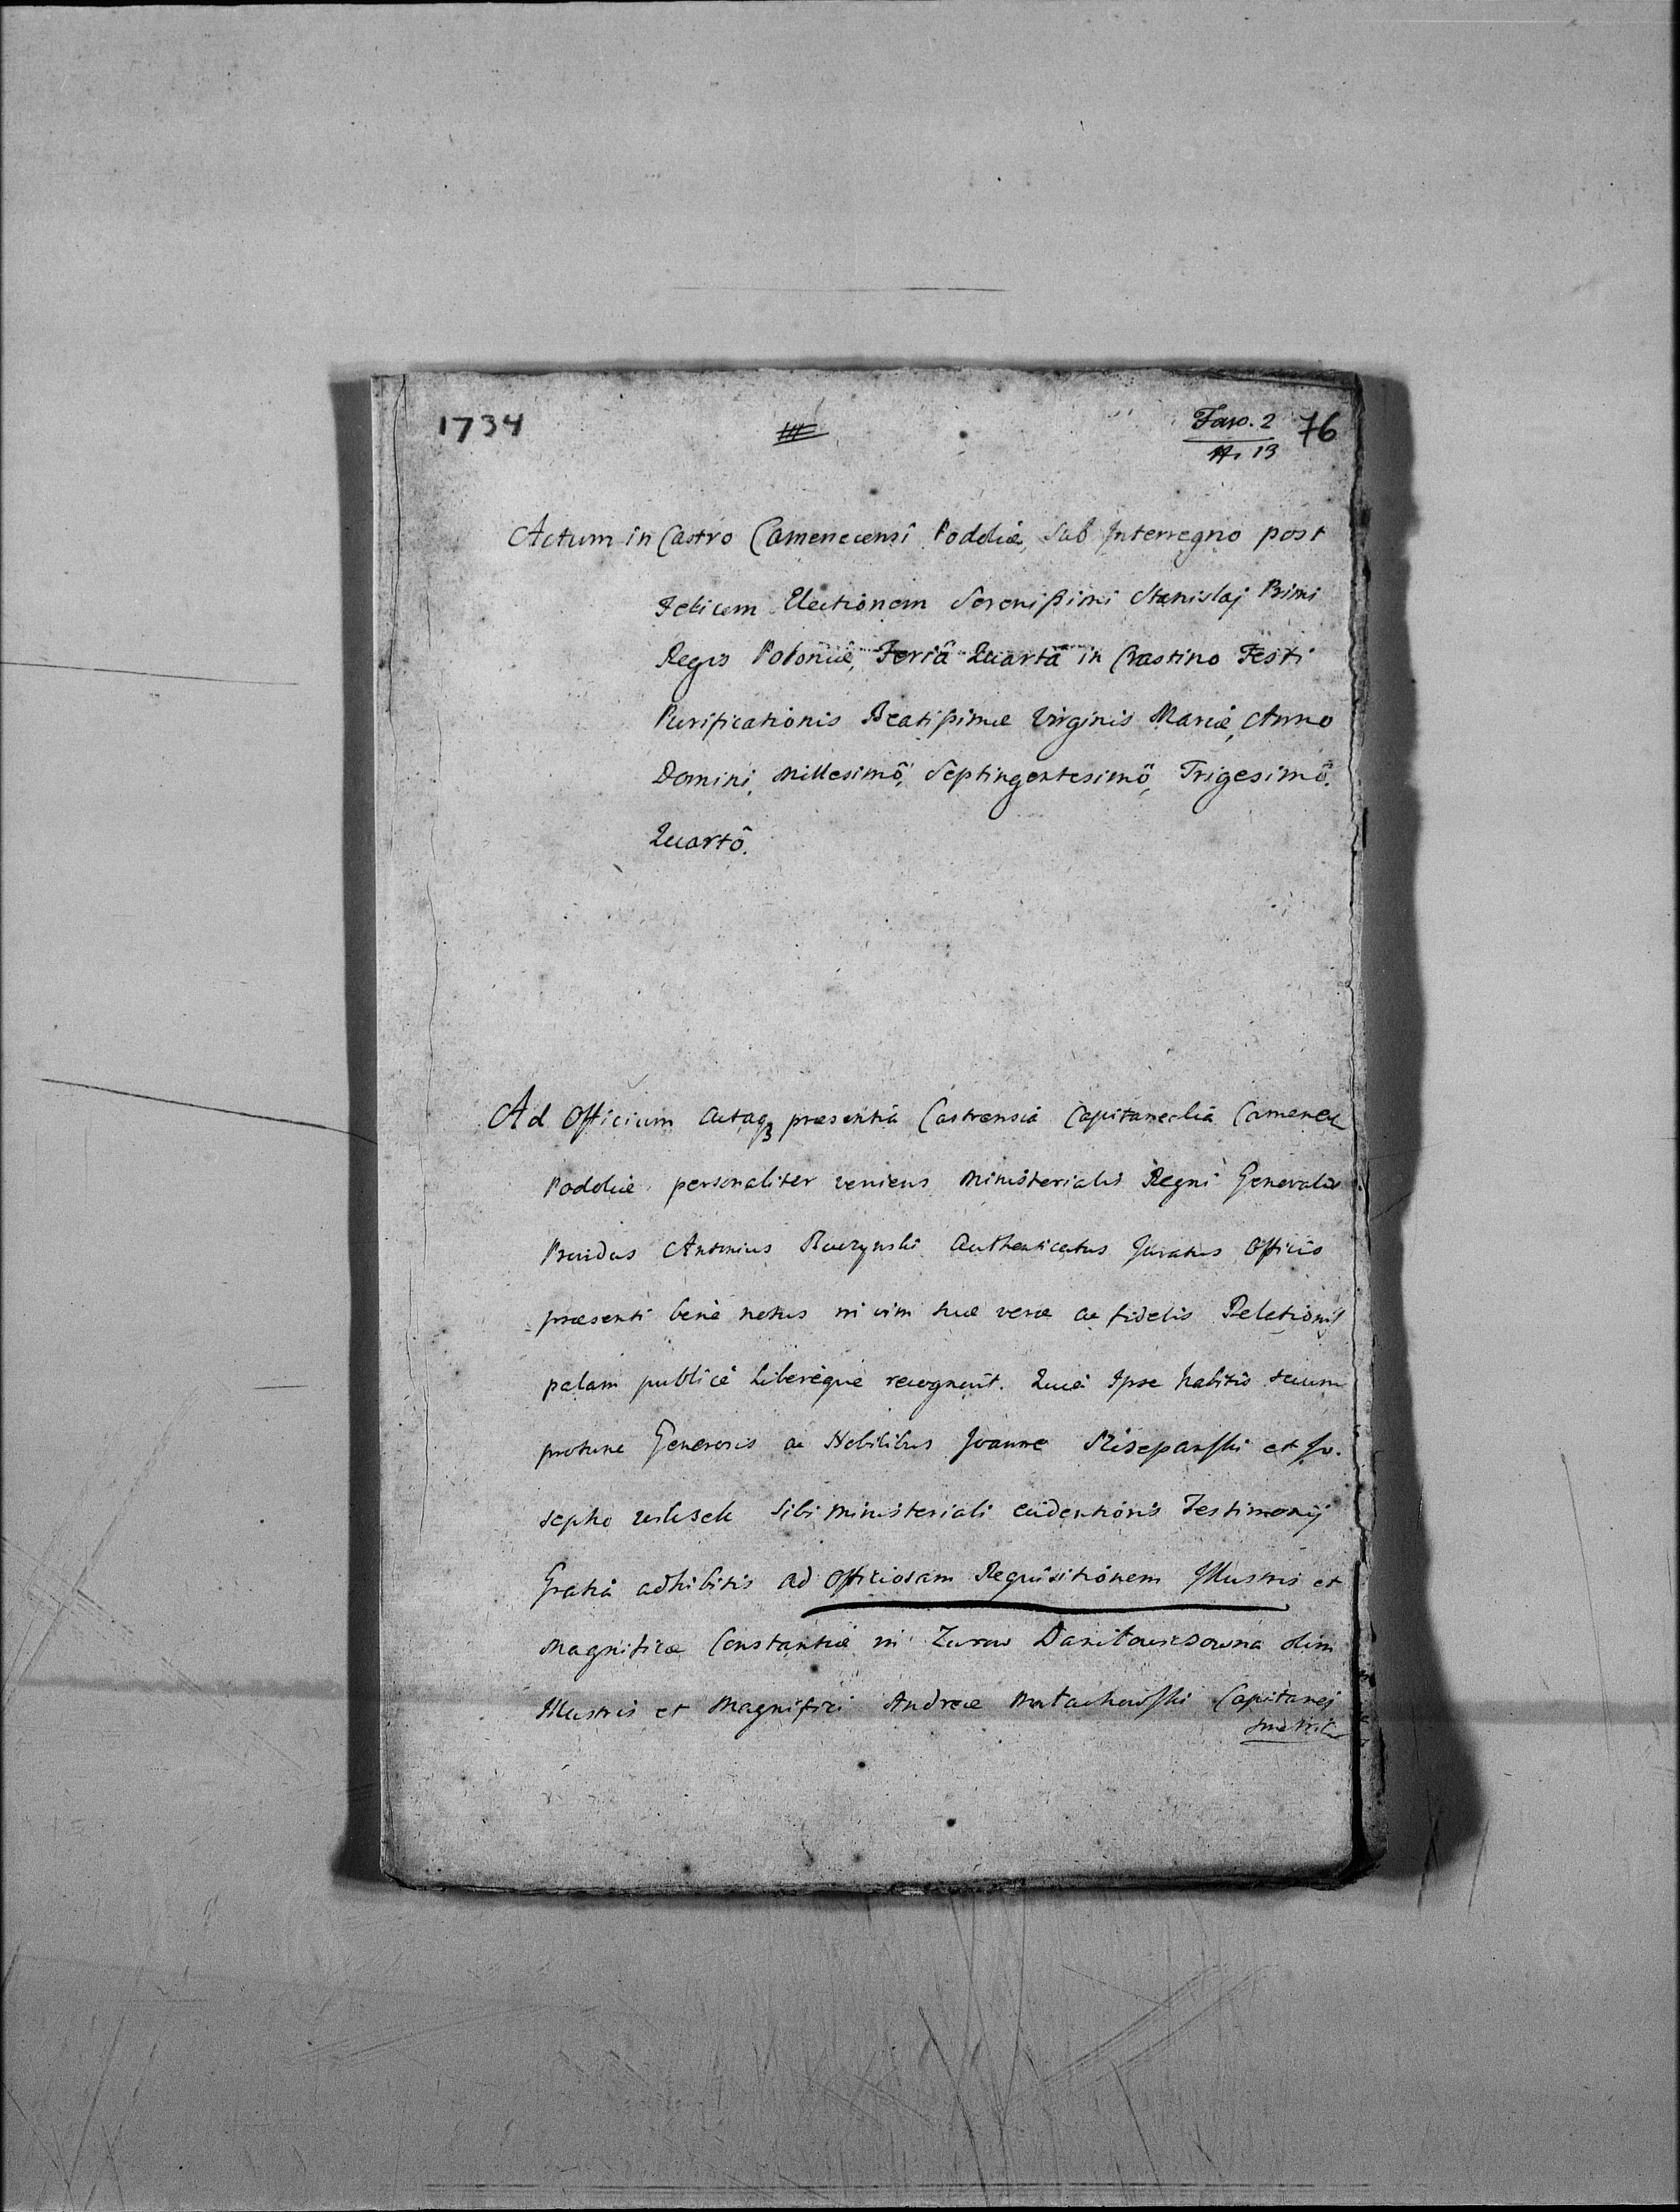 1734 Fasc. 2 76
N. 13
Actum in Castro Camenecensi Podoliæ, Sub Interregno post
Felicem Electionem Serenißimi Stanislaj Primi
Regis Poloniæ, Feriâ Quartâ in Crastino Festi
Purificationis Beatißimæ Virginis Mariæ, Anno
Domini, Millesimô, Septingentesimô, Trigesimô.
Quartô.
Ad Officium Actaq3 præsentia Castrensia Capitanealia Camenec
Podoliæ personaliter veniens Ministerialis Regni Generalis
Providus Antonius Authenticatus Juratus Officio
præsenti benè notus in vim suæ veræ ac fidelis Relationis
palam publicè Liberèque recognovit. Quia Ipse habitis secum
protunc Generosis ac Nobilibus Joanne et Jo-
sepho Sibi Ministeriali evidentioris Testimonij
Gratiâ adhibitis ad Officiosam Requisitionem Illustris et
Magnificæ Constantiæ in Zurow Daniłowiczowna olim
Illustris et Magnifici Andreæ Małachowski Capitanej